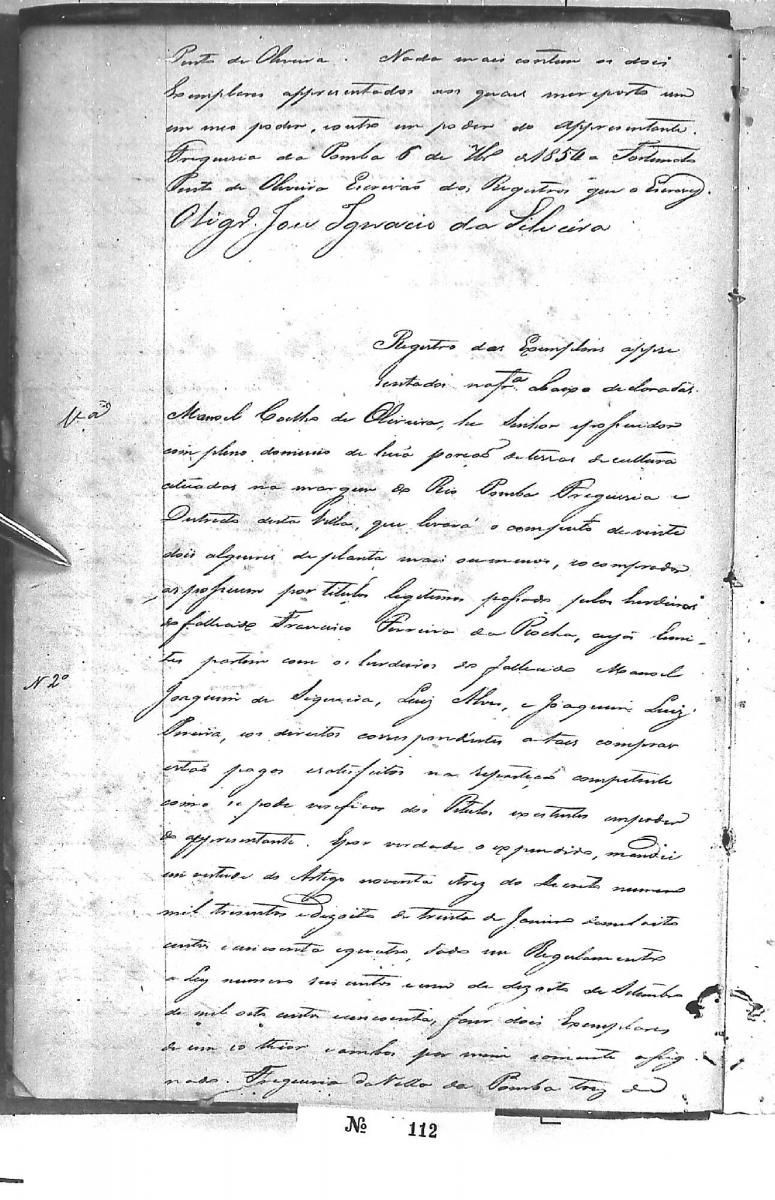 Pinto de Oliveira. Nada mais contem os dois
Exemplares appresentados aos quaes me reporto um
em meo poder, e outro em poder do appresentante.
Freguesia da Pomba 6 de 7bro de 1854 Fortunato
Pinto de Oliveira Escrivão dos Registros que o Escrevy.
O Vigro. Jose Ignacio da Silveira
Registro dos Exemplares appre
sentados na fra abaixo declarados.
Manoel Coelho de Oliveira, he Senhor e possuidor
com pleno dominio de huã porção de terras de cultura
cituadas na margem do Rio Pomba Freguesia e
Destricto desta Villa, que levará o computo de vinte
dois alqueires de planta mais ou menos, e o comprador
as possuem por titulos legitimos passados pelos herdeiros
do fallecido Francisco Ferreira da Rocha, cujos limi-
N 2º
tes partem com os herdeiros do fallecido Manoel
Joaquim de Siqueira, Luiz Alves, e Joaquim Luiz
Pereira, e os direitos correspondentes a taes compras
estão pagos e satisfeitos na repartição competente
como se pode verificar dos Titulos existentes em poder
do appresentante. E por verdade o expendido, mandei
em vertude do Artigo noventa e trez do Decreto numero
mil tresentos e dezoito de trinta de Janeiro de mil oito
centos e cincoenta e quatro, dado em Regulamento
a Ley numero seis centos e um de dezoito de Setembro
de mil oito centos e cincoenta, fazer dois Exemplares
de um só thior e ambos por mim somente assig
nado. Freguesia da Villa da Pomba trez de
Nº 112